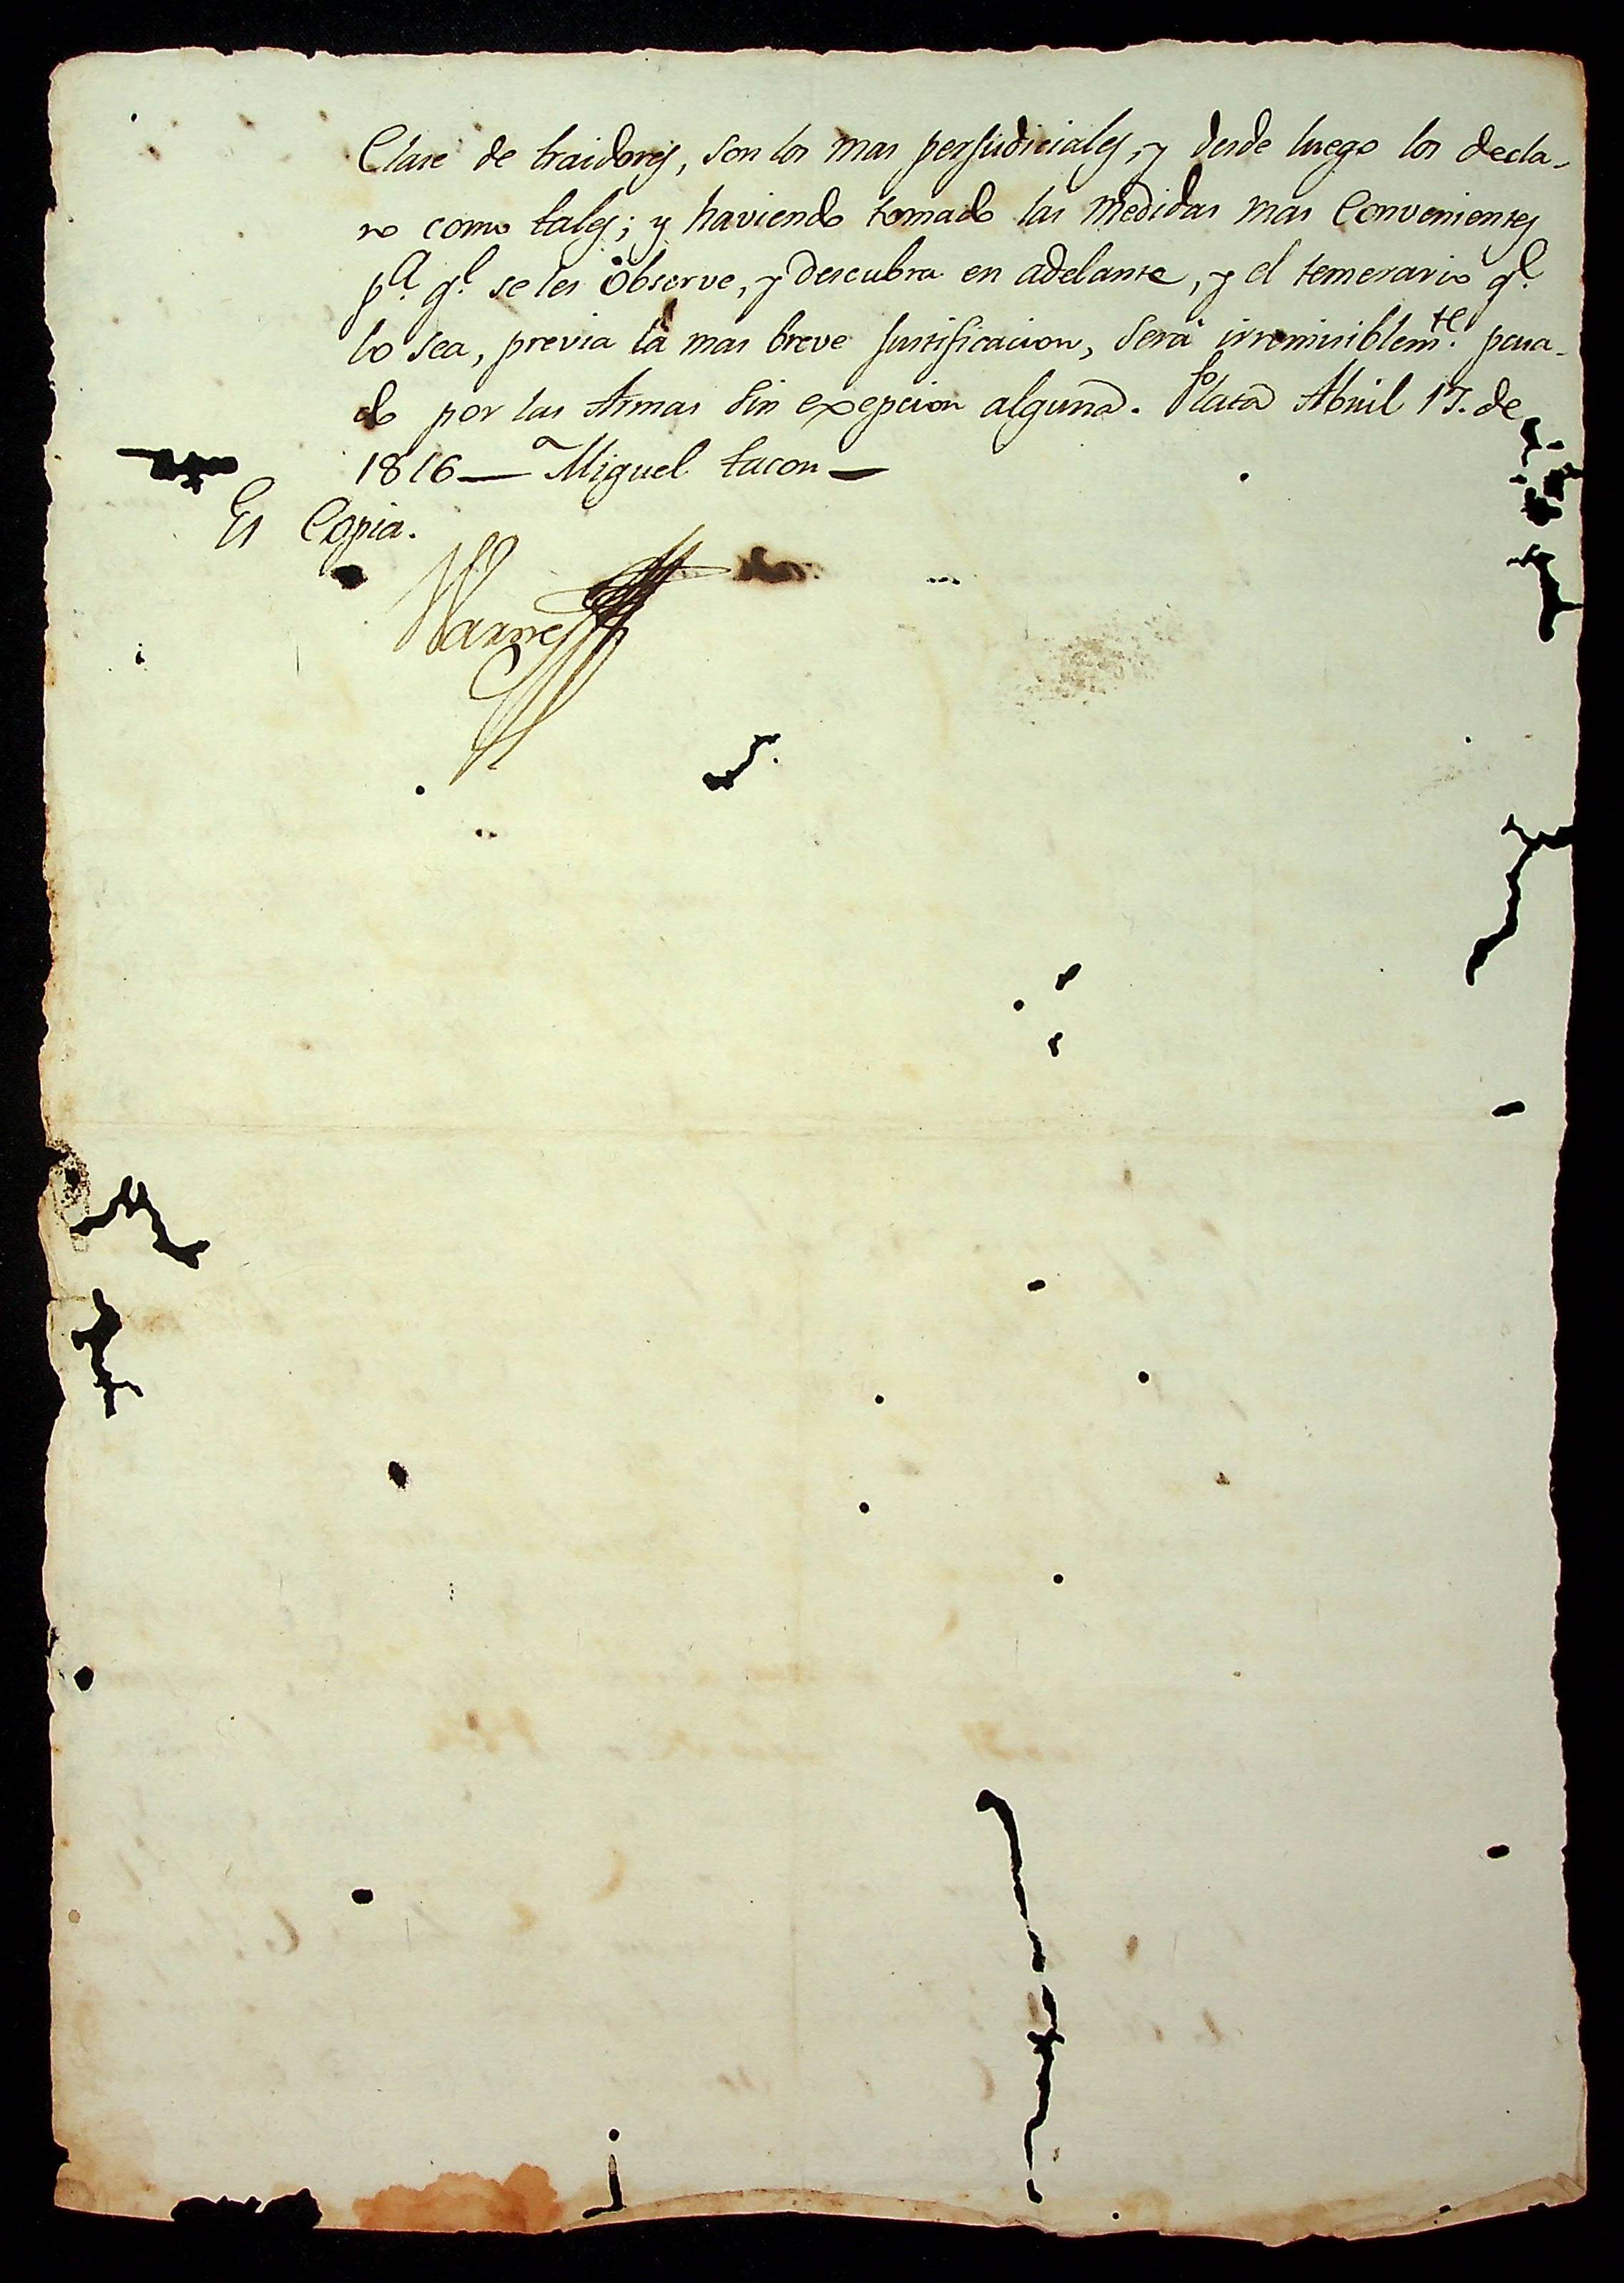 Clase de traidores, son los mas perjudiciales, y desde luego los decla-
ro como tales; y haviendo tomado las medidas mas Convenientes
p.a q.e se les observe, y descubra en adelante, y el temerario q.e
lo sea, previa la mas breve justificacion, será irremisiblem.te pasa-
do por las Armas sin exepcion alguna. Plata Abril 17. de
1816 — Miguel tacon —
Es Copia.
Warnes